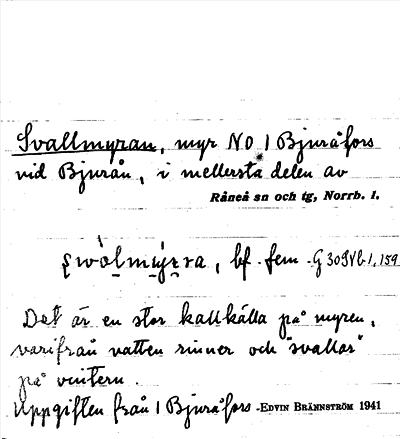 Svallmyran, myr NO 1 Bjuråfors
vid Bjurån, i mellersta delen av
Råneå sn och tg, Norrb. l.
bf. fem.
Det är en stor kallkälla på myren,
varifrån vatten rinner och "svallar"
på vintern.
Uppgiften från 1 Bjuråfors - EDVIN BRÄNNSTRÖM 1941